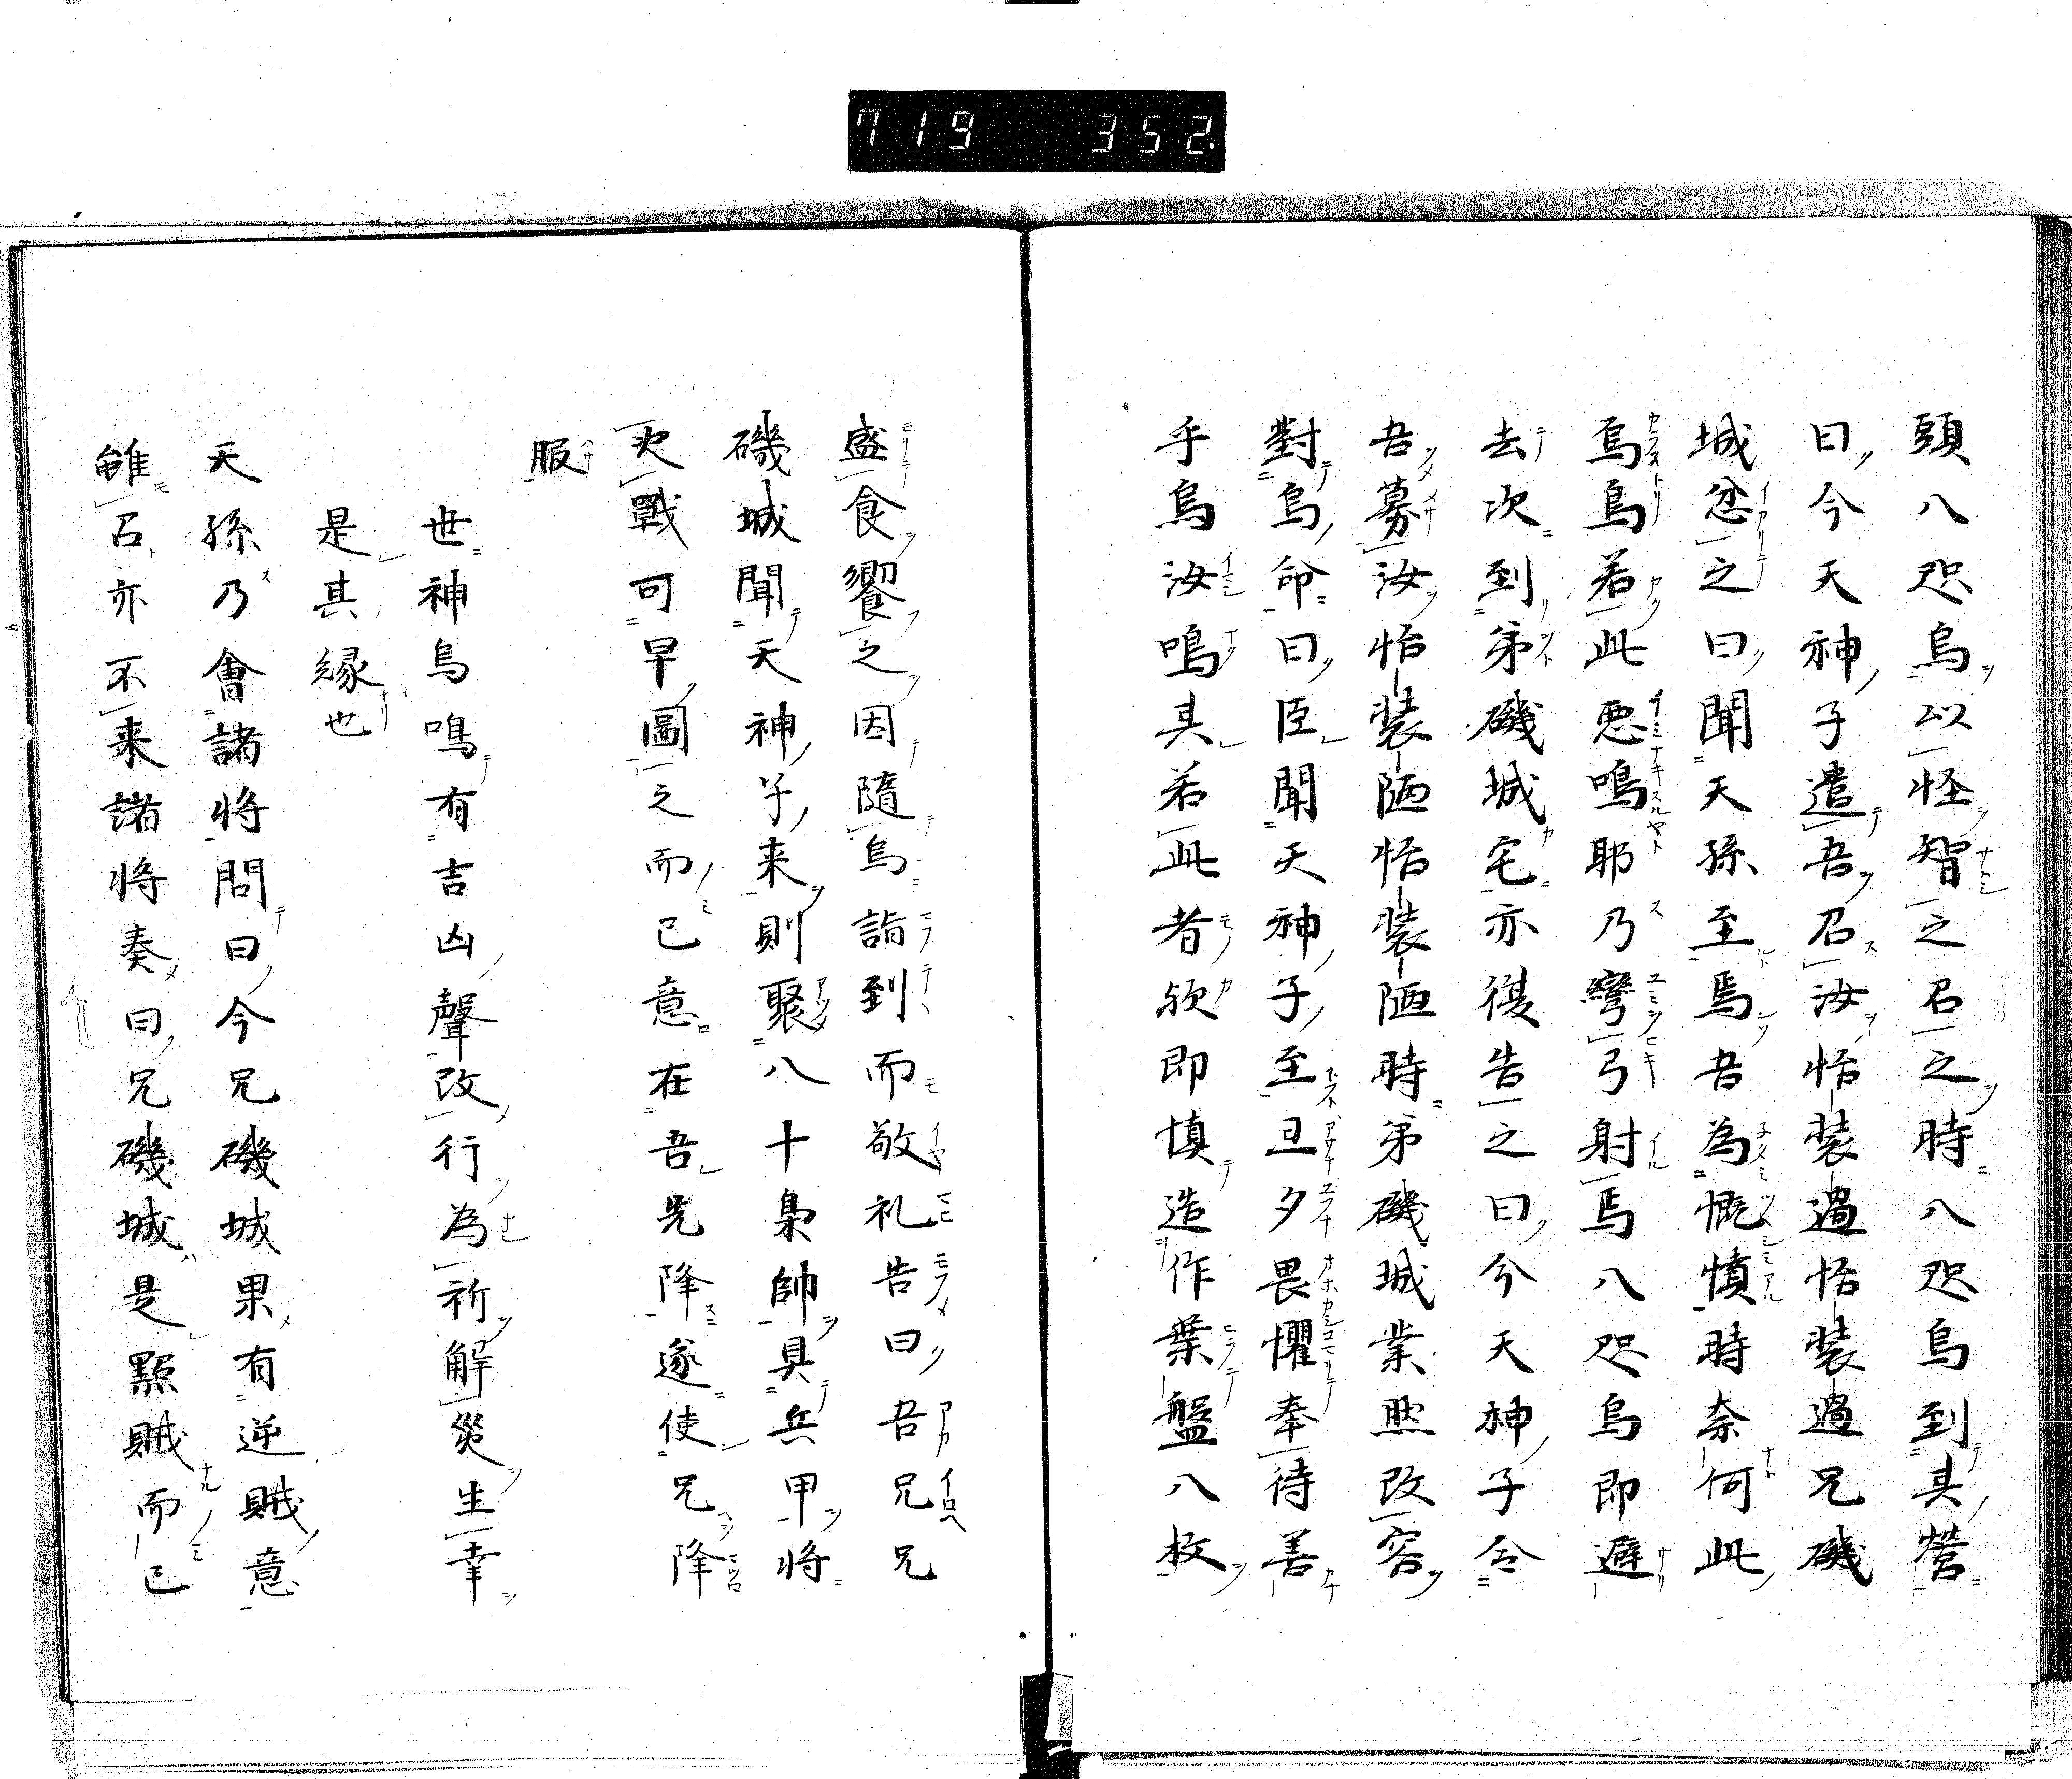 719 352.
頭八咫烏以怪智之召之時八咫烏到其營
曰今天神子遣吾召汝怡裝過怡裝過兄磯
城忿之曰聞天孫至焉吾為慨憤時奈何此
烏鳥若此惡鳴耶乃彎弓射焉八咫烏即避
去次到弟磯城宅亦復告之曰今天神子令
吾募汝怡裝陋怡裝陋時弟磯城業然改容
對烏命曰臣聞天神子至旦夕畏懼奉待善
乎烏汝鳴其若此者欤即慎造作葉盤八枚
盛食饗之因隨烏詣到而敬礼告曰吾兄兄
磯城聞天神子来則聚八十梟帥具兵甲将
決戰可早圖之而已意在吾先降遂使兄降
服
世神烏鳴有吉凶聲改行為祈解災生幸
是其縁也
天孫乃會諸将問曰今兄磯城果有逆賊意
雖召亦不来諸将奏曰兄磯城是黠賊而已